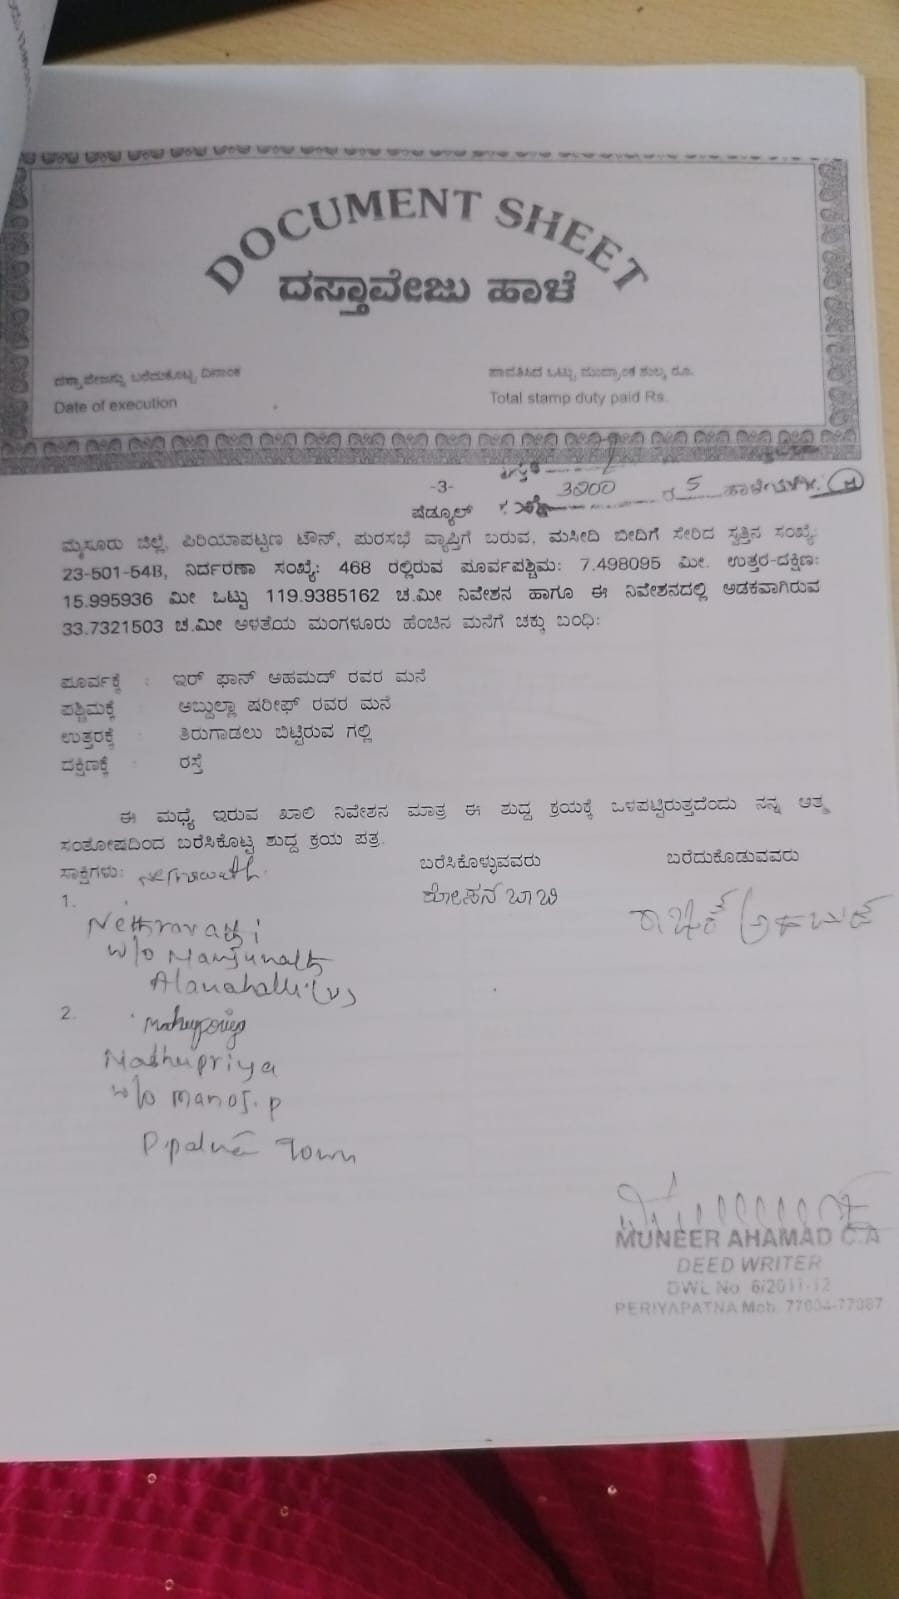 DOCUMENT SHEET
ದಸ್ತಾವೇಜು ಹಾಳೆ
ದಸ್ತಾವೇಜನ್ನು ಬರೆದುಕೊಟ್ಟ ದಿನಾಂಕ
ಪಾವತಿಸಿದ ಒಟ್ಟು ಮುದ್ರಾಂಕ ಶುಲ್ಕ ರೂ.
Date of execution
Total stamp duty paid Rs.
-3-
3000 5
ಷೆಡ್ಯೂಲ್
ಮೈಸೂರು ಜಿಲ್ಲೆ, ಪಿರಿಯಾಪಟ್ಟಣ ಟೌನ್, ಪುರಸಭೆ ವ್ಯಾಪ್ತಿಗೆ ಬರುವ, ಮಸೀದಿ ಬೀದಿಗೆ ಸೇರಿದ ಸ್ವತ್ತಿನ ಸಂಖ್ಯೆ:
23-501-54B, ನಿರ್ದರಣಾ ಸಂಖ್ಯೆ: 468 ರಲ್ಲಿರುವ ಪೂರ್ವಪಶ್ಚಿಮ: 7.498095 ಮೀ. ಉತ್ತರ-ದಕ್ಷಿಣ:
15.995936 ಮೀ ಒಟ್ಟು 119.9385162 ಚ.ಮೀ ನಿವೇಶನ ಹಾಗೂ ಈ ನಿವೇಶನದಲ್ಲಿ ಅಡಕವಾಗಿರುವ
33.7321503 ಚ.ಮೀ ಅಳತೆಯ ಮಂಗಳೂರು ಹೆಂಚಿನ ಮನೆಗೆ ಚಕ್ಕು ಬಂಧಿ:
ಪೂರ್ವಕ್ಕೆ : ಇರ್ ಫಾನ್ ಅಹಮದ್ ರವರ ಮನೆ
ಪಶ್ಚಿಮಕ್ಕೆ : ಅಬ್ದುಲ್ಲಾ ಷರೀಫ್ ರವರ ಮನೆ
ಉತ್ತರಕ್ಕೆ : ತಿರುಗಾಡಲು ಬಿಟ್ಟಿರುವ ಗಲ್ಲಿ
ದಕ್ಷಿಣಕ್ಕೆ : ರಸ್ತೆ
ಈ ಮಧ್ಯೆ ಇರುವ ಖಾಲಿ ನಿವೇಶನ ಮಾತ್ರ ಈ ಶುದ್ದ ಕ್ರಯಕ್ಕೆ ಒಳಪಟ್ಟಿರುತ್ತದೆಂದು ನನ್ನ ಆತ್ಮ
ಸಂತೋಷದಿಂದ ಬರೆಸಿಕೊಟ್ಟ ಶುದ್ದ ಕ್ರಯ ಪತ್ರ.
ಸಾಕ್ಷಿಗಳು: ಬರೆಸಿಕೊಳ್ಳುವವರು ಬರೆದುಕೊಡುವವರು
1.
Nethravathi
w/o Manjunath
Alanahalli (v)
2.
Madhupriya
w/o Manoj. P
P.patna Town
MUNEER AHAMAD C.A
DEED WRITER
DWL No 6/2011-12
PERIYAPATNA Mob.